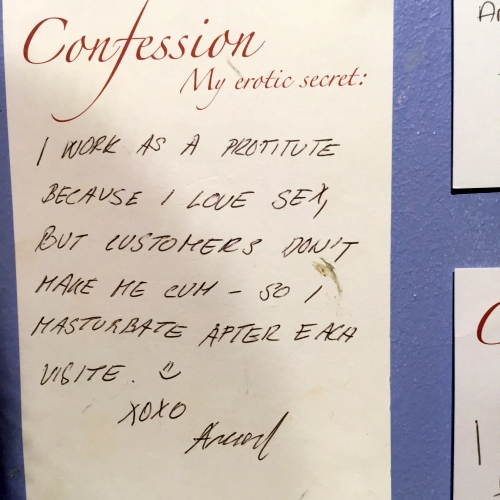 Confession
My erotic secret:
I WORK AS A PROTITUTE
BECAUSE I LOVE SEX,
BUT CUSTOMERS DON'T
MAKE ME CUM – SO I
MASTURBATE AFTER EACH
VISITE. ☺
XOXO